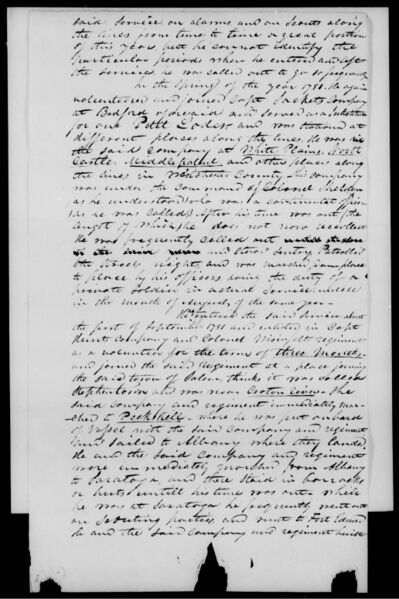 said Service on alarms and on Scouts along
the lines from time to time a great portion
of this year but he cannot identify the
particular periods when he entered and left
the Service he was called out to go so frequent
In the Spring of the year 1781 he again
volunteered and joined Capt Sackets Company
at Bedford aforesaid and served as a substitute
for one Petit and was stationed at
different places along the lines. He was
the said Company at White Plains, North
Castle, Middlepatent and other places along
the lines in Westchester County his company
was under the command of Colonel Sheldon
as he understood who was a continental officer
(as he was called) After his time was out (the
length of which) he does not now recollect
He was frequently called out
in the and stood Sentry, Patrolled
the Street nights and was marched from place
to place by his officers doing the duty of a
private Soldier in actual Service untill
in the month of August, of the same year
He entered the said service about
the first of September 1781 and enlisted in Capt
Hunt Company and Colonel regiment
as a volunteer for the term of three Months
and joined the said Regiment at a place joining
the said town of Salem, thinks it was called
Stephentown and was near Croton river. The
said company and regiment immediately mar-
ched to Peekskill where he was put onboard
of Vessel with the said Company and regiment
and sailed to Albany where they landed
He and the said Company and regiment
were immediately marched from Albany
to Saratoga, and there staid in barracks
or huts untill his time was out - while
he was at Saratoga he frequently went out
on Scouting parties, and went to Fort Edward
He and the said Company and regiment